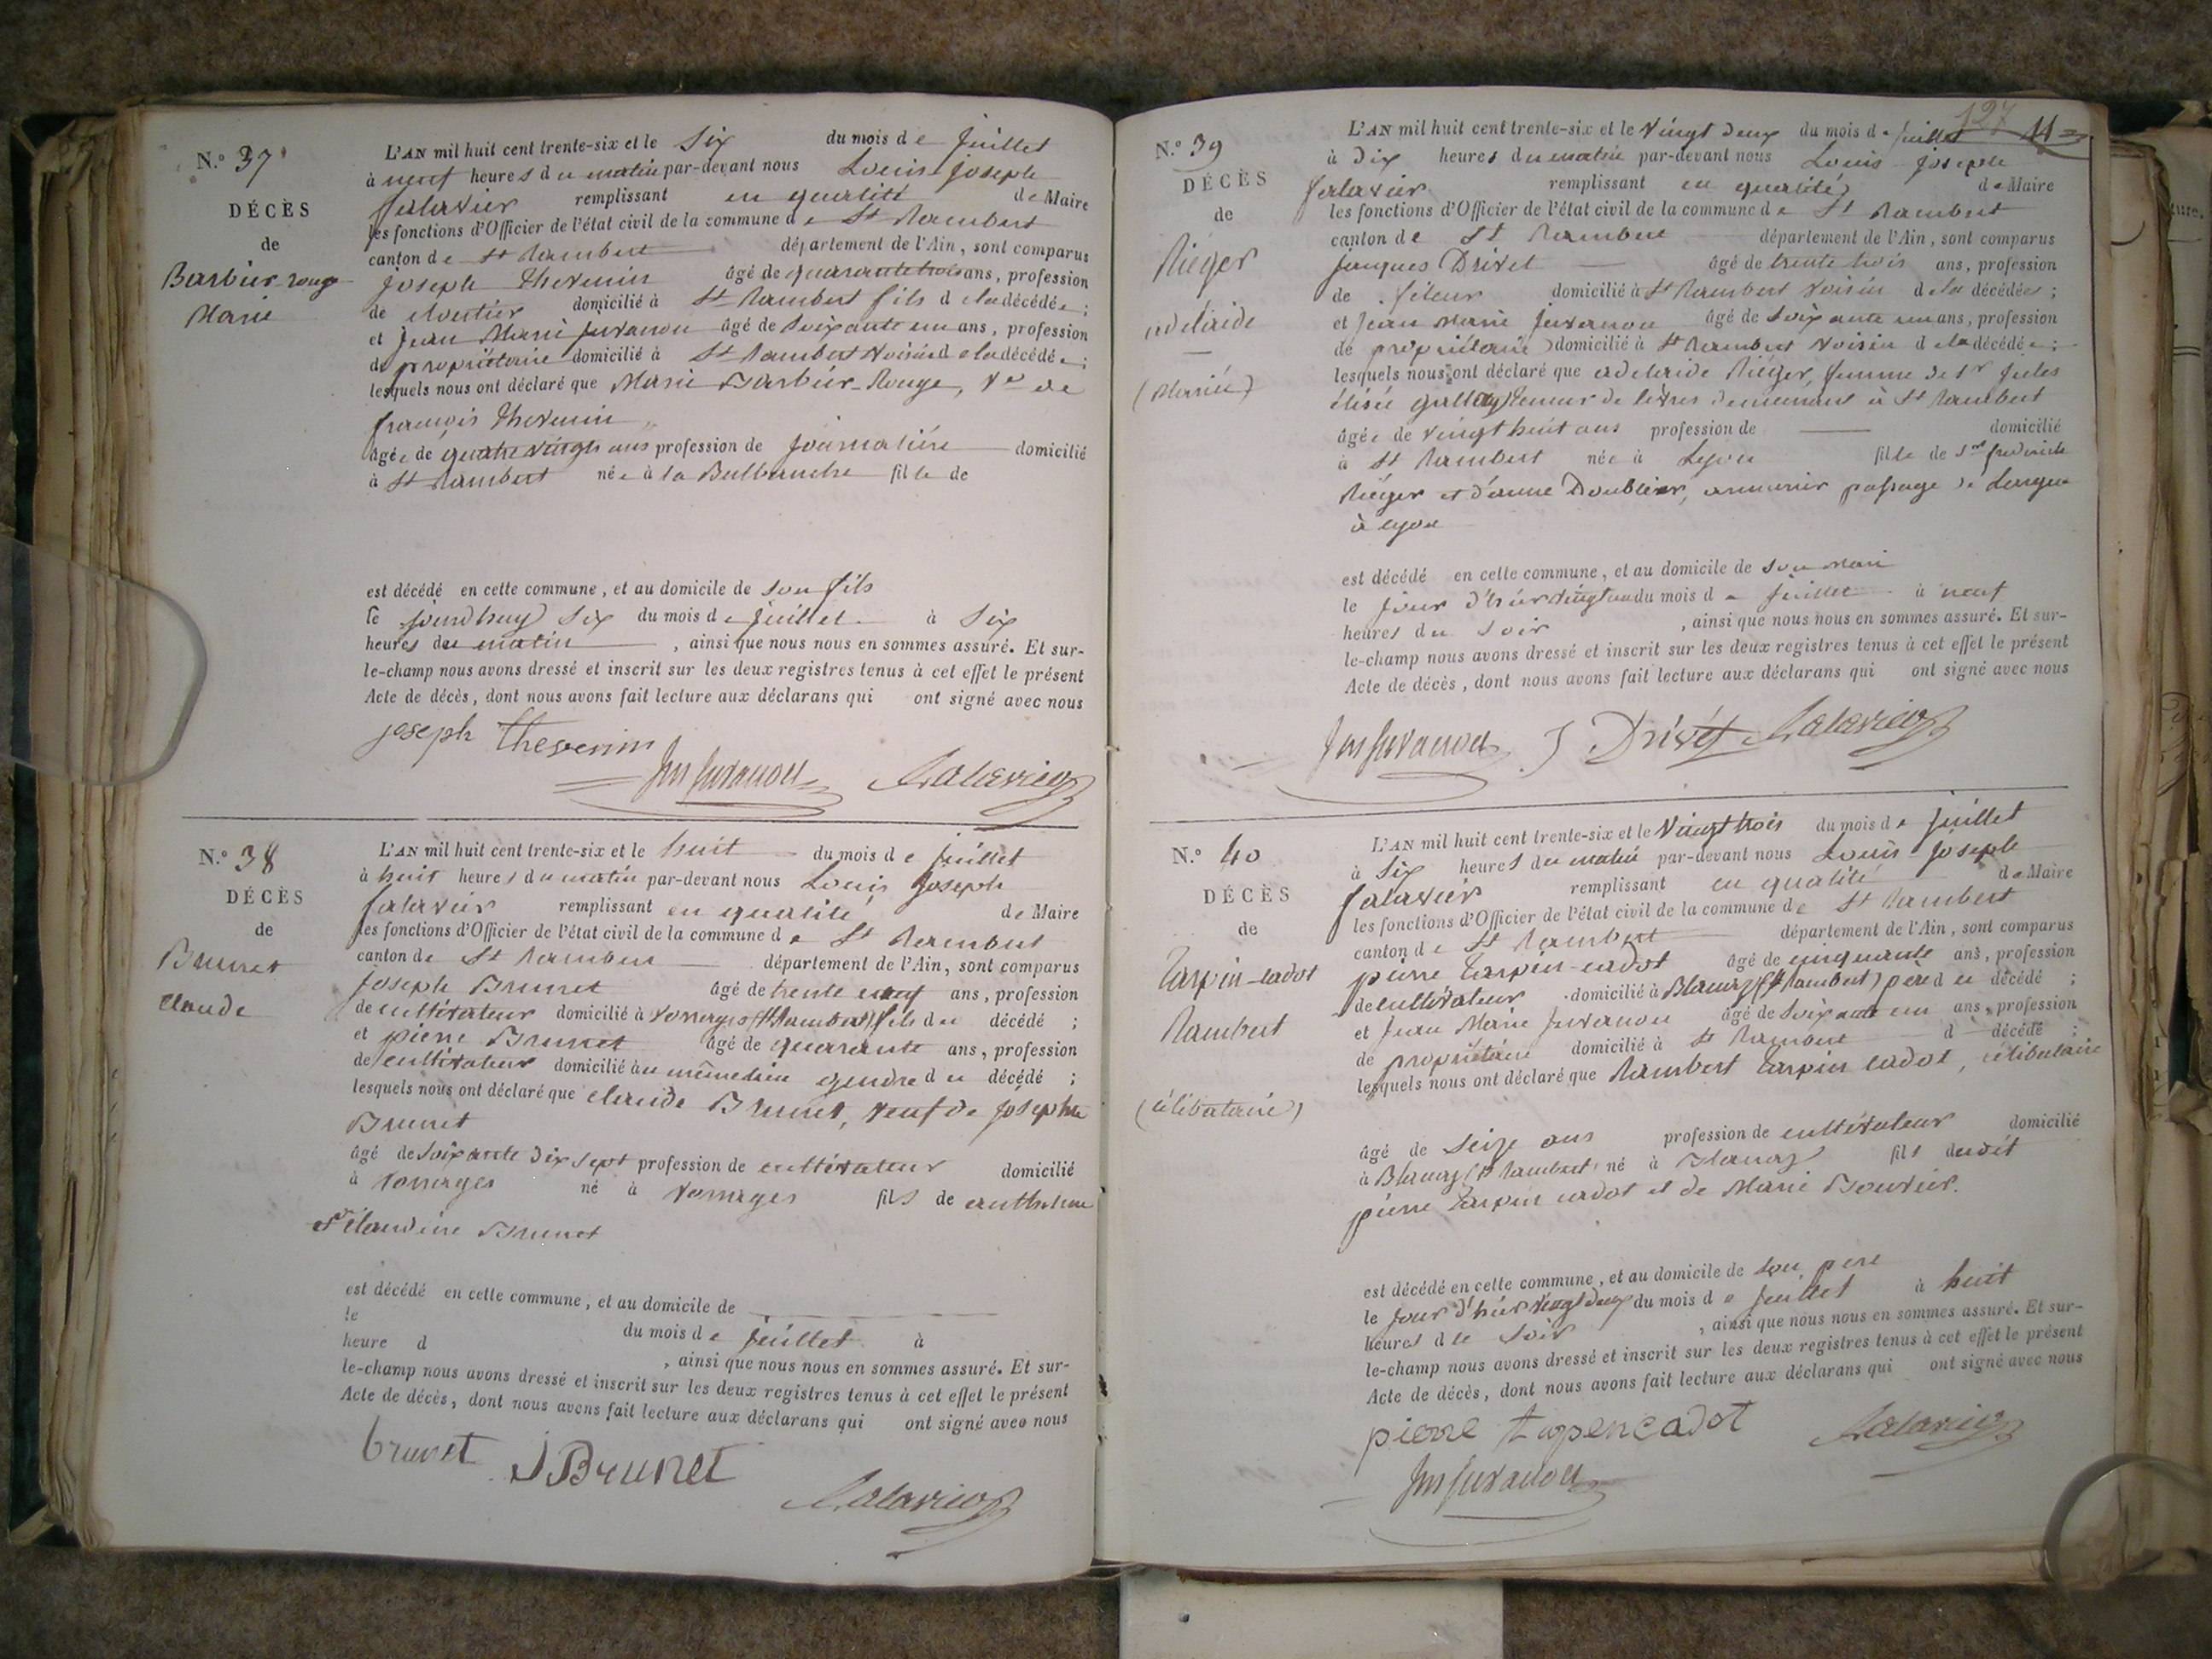 N.o 37
DÉCÈS
de
Barbier-rouge
Marie
L'AN mil huit cent trente-six et le Six du mois de juillet
à neuf heures du matin par-devant nous Louis Joseph
falavier remplissant en qualité de Maire
les fonctions d'Officier de l'état civil de la commune de St Rambert
canton de St Rambert département de l'Ain, sont comparus
Joseph Thevenin âgé de quarante trois ans, profession
de domicilié à St Rambert fils de la décédée ;
et Jean Marie Juvanon âgé de Soixante un ans, profession
de propriétaire domicilié à St Rambert voisin de la décédée ;
lesquels nous ont déclaré que Marie Barbier-Rouge, Ve de
françois Thevenin
âgée de quatre vingts ans profession de journalière domicilié
à St Rambert née à la fille de
est décédé en cette commune, et au domicile de son fils
le jourd'huy Six du mois de juillet à Six
heures du matin , ainsi que nous nous en sommes assuré. Et sur-
le-champ nous avons dressé et inscrit sur les deux registres tenus à cet effet le présent
Acte de décès, dont nous avons fait lecture aux déclarans qui ont signé avec nous
joseph thevenin
Jm Juvanon falavier
N.o 38
DÉCÈS
de
Brunet
claude
L'AN mil huit cent trente-six et le huit du mois de juillet
à huit heures du matin par-devant nous Louis Joseph
falavier remplissant en qualité de Maire
les fonctions d'Officier de l'état civil de la commune de St Rambert
canton de St Rambert département de l'Ain, sont comparus
Joseph Brunet âgé de trente neuf ans, profession
de cultivateur domicilié à vorages (St Rambert) fils du décédé ;
et pierre Brunet âgé de quarante ans, profession
de cultivateur domicilié au même lieu gendre du décédé ;
lesquels nous ont déclaré que claude Brunet, veuf de josephte
Brunet
âgé de soixante dix sept profession de cultivateur domicilié
à vorages né à vorages fils de anthelme
et claudine Brunet
est décédé en cette commune, et au domicile de
le du mois de juillet à
heure d , ainsi que nous nous en sommes assuré. Et sur-
le-champ nous avons dressé et inscrit sur les deux registres tenus à cet effet le présent
Acte de décès, dont nous avons fait lecture aux déclarans qui ont signé avec nous
brunet J Brunet
falavier
127
N.o 39
DÉCÈS
de
Riéger
adelaide
(Mariée)
L'AN mil huit cent trente-six et le vingt deux du mois de juillet
à Dix heures du matin par-devant nous Louis Joseph
falavier remplissant en qualité de Maire
les fonctions d'Officier de l'état civil de la commune de St Rambert
canton de St Rambert département de l'Ain, sont comparus
Jacques Drivet âgé de trente trois ans, profession
de fileur domicilié à St Rambert voisin de la décédée ;
et Jean Marie Juvanon âgé de Soixante un ans, profession
de propriétaire domicilié à St Rambert voisin de la décédée ;
lesquels nous ont déclaré que adelaide Riéger, femme de Sr Jules
élisée teneur de livres demeurant à St Rambert
âgée de vingt huit ans profession de domicilié
à St Rambert née à Lyon fille de frederick
Riéger et d'anne Doublier, passage de
à Lyon
est décédé en cette commune, et au domicile de son Mari
le jour d'hier vingt un du mois de juillet à neuf
heures du soir , ainsi que nous nous en sommes assuré. Et sur-
le-champ nous avons dressé et inscrit sur les deux registres tenus à cet effet le présent
Acte de décès, dont nous avons fait lecture aux déclarans qui ont signé avec nous
Jm Juvanon J Drivet falavier
N.o 40
DÉCÈS
de
Tarpin-cadot
Rambert
(célibataire)
L'AN mil huit cent trente-six et le vingt trois du mois de juillet
à Six heures du matin par-devant nous Louis Joseph
falavier remplissant en qualité de Maire
les fonctions d'Officier de l'état civil de la commune de St Rambert
canton de St Rambert département de l'Ain, sont comparus
pierre Tarpin-cadot âgé de cinquante ans, profession
de cultivateur domicilié à Blanaz (St Rambert) père du décédé ;
et Jean Marie Juvanon âgé de Soixante un ans, profession
de propriétaire domicilié à St Rambert d décédé ;
lesquels nous ont déclaré que Rambert Tarpin cadot, célibataire
âgé de seize ans profession de cultivateur domicilié
à Blanaz (St Rambert) né à Blanaz fils dudit
pierre Tarpin cadot et de Marie Bouvier.
est décédé en cette commune, et au domicile de son père
le jour d'hier vingt deux du mois de juillet à huit
heures du soir , ainsi que nous nous en sommes assuré. Et sur-
le-champ nous avons dressé et inscrit sur les deux registres tenus à cet effet le présent
Acte de décès, dont nous avons fait lecture aux déclarans qui ont signé avec nous
pierre tarpencadot falavier
Jm Juvanon